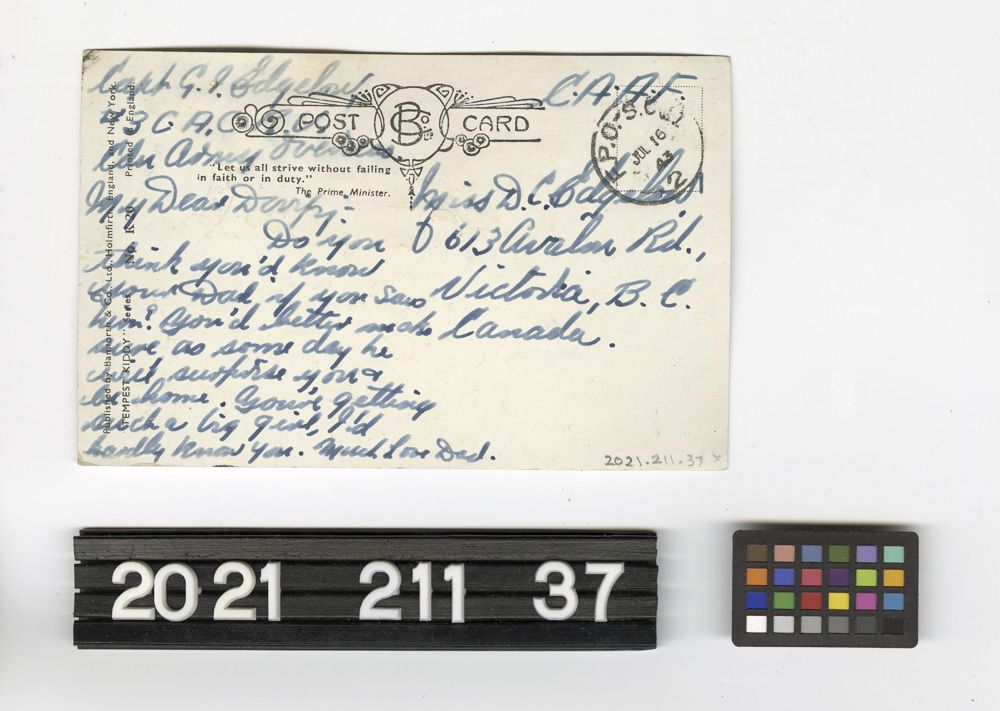 Capt G. I. Edgelow
C.A.P.F.
Cdn Army Overseas
POST CARD
B Co. Ltd.
"Let us all strive without failing
in faith or in duty."
The Prime Minister.
F.P.O.-S.C.
JUL 16
43
2
My Dear
Do you
think you'd know
your Dad if you saw
him? You'd better make
sure as some day he
will surprise you &
be home. You're getting
such a big girl, I'd
hardly know you. Much Love Dad.
Miss D. C. Edgelow
613 Avalon Rd.,
Victoria, B. C.
Canada.
Published by Bamforth & Co., Ltd., Holmfirth, England, and New York.
"TEMPEST KIDDY" Series No. K 20 Printed in England.
2021.211.37
2021 211 37